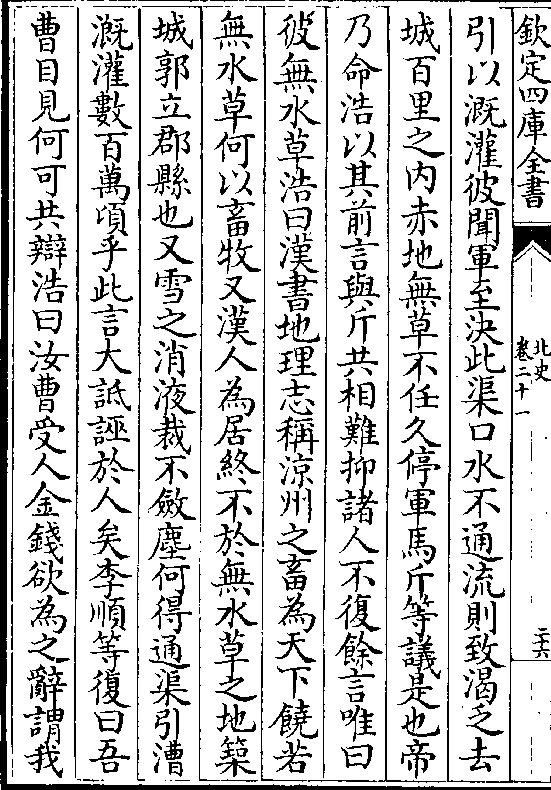 欽定四庫全書
北史
卷二十一
二十六
引以溉灌彼聞軍至決此渠口水不通流則致渴乏去
城百里之内赤地無草不任久停軍馬斤等議是也帝
乃命浩以其前言與斤共相難抑諸人不復餘言唯曰
彼無水草浩曰漢書地理志稱涼州之畜為天下饒若
無水草何以畜牧又漢人為居終不於無水草之地築
城郭立郡縣也又雪之消液裁不斂塵何得通渠引漕
溉灌數百萬頃乎此言大詆誣於人矣李順等復曰吾
曹目見何可共辯浩曰汝曹受人金錢欲為之辭謂我